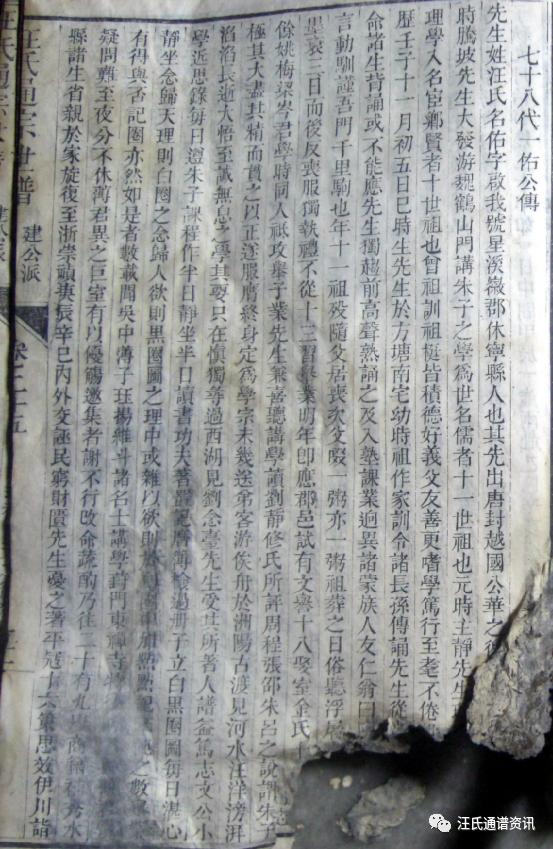 七十八代一佑公傳
先生姓汪氏名佑字啟我號星溪徽郡休寧縣人也其先出唐封越國公華之後
時騰坡先生大發游魏鶴山門講朱子之學為世名儒者十一世祖也元時主靜先生
理學入名宦鄉賢者十世祖也曾祖訓祖梃皆積德好義父友善更嗜學篤行至耄不倦
歷壬子十一月初五日巳時生先生於方塘南宅幼時祖作家訓令諸長孫傳誦先生從
命諸生背誦或不能應先生獨趨前高聲熟誦之及入塾課業迥異諸蒙族人友仁翁曰
言動馴謹吾門千里駒也年十一祖歿隨父居喪次父啜一粥亦一粥祖葬之日俗聽浮屠
墨衰三日而後反喪服獨執禮不從十三習舉業明年卽應郡邑試有文譽十八娶室余氏
餘姚梅岑君學時同人祇攻舉子業先生兼善聽講學讀劉靜修氏所評周程張邵朱呂之說謂朱子
極其大盡其精而貫之以正遂服膺終身定為學宗未幾送弟客游俟舟於洲陽古渡見河水汪洋滂湃
滔滔長逝大悟至誠無息之學其要只在慎獨等過西湖見劉念臺先生受其所著人譜益篤志文公小
學近思錄每日遵朱子課程作半日靜坐半日讀書功夫著日記曆簿檢過册子立白黑圈圖每日湛心
靜坐念歸天理則白圈之念歸人欲則黑圈圖之理中或雜以欲則於圈中加點點記之數
有得與否記圈亦然如是者數載聞吳中薄子玨揚維斗諸名士講學葑門東禪寺
疑問難至夜分不休薄君異之巨室有以優觴邀集者謝不行改命蔬酌乃往二十有九秀水
縣諸生省親於家旋復至浙崇禎庚辰辛巳內外交訌民窮財匱先生憂之著平寇十六策思效伊川詣
汪氏通宗世譜 建公派
卷
汪氏通谱资讯